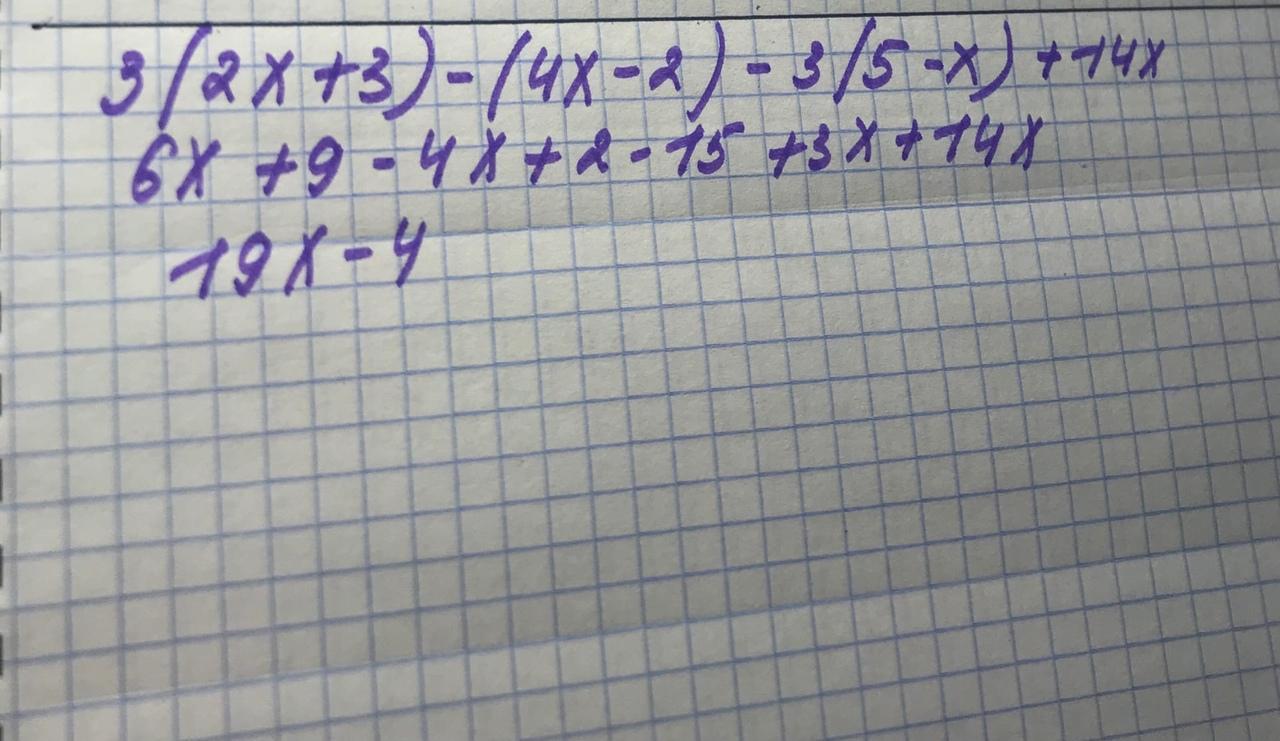 3(2x+3)-(4x-2)-3(5-x)+14x
6x+9-4x+2-15+3x+14x
19x-4